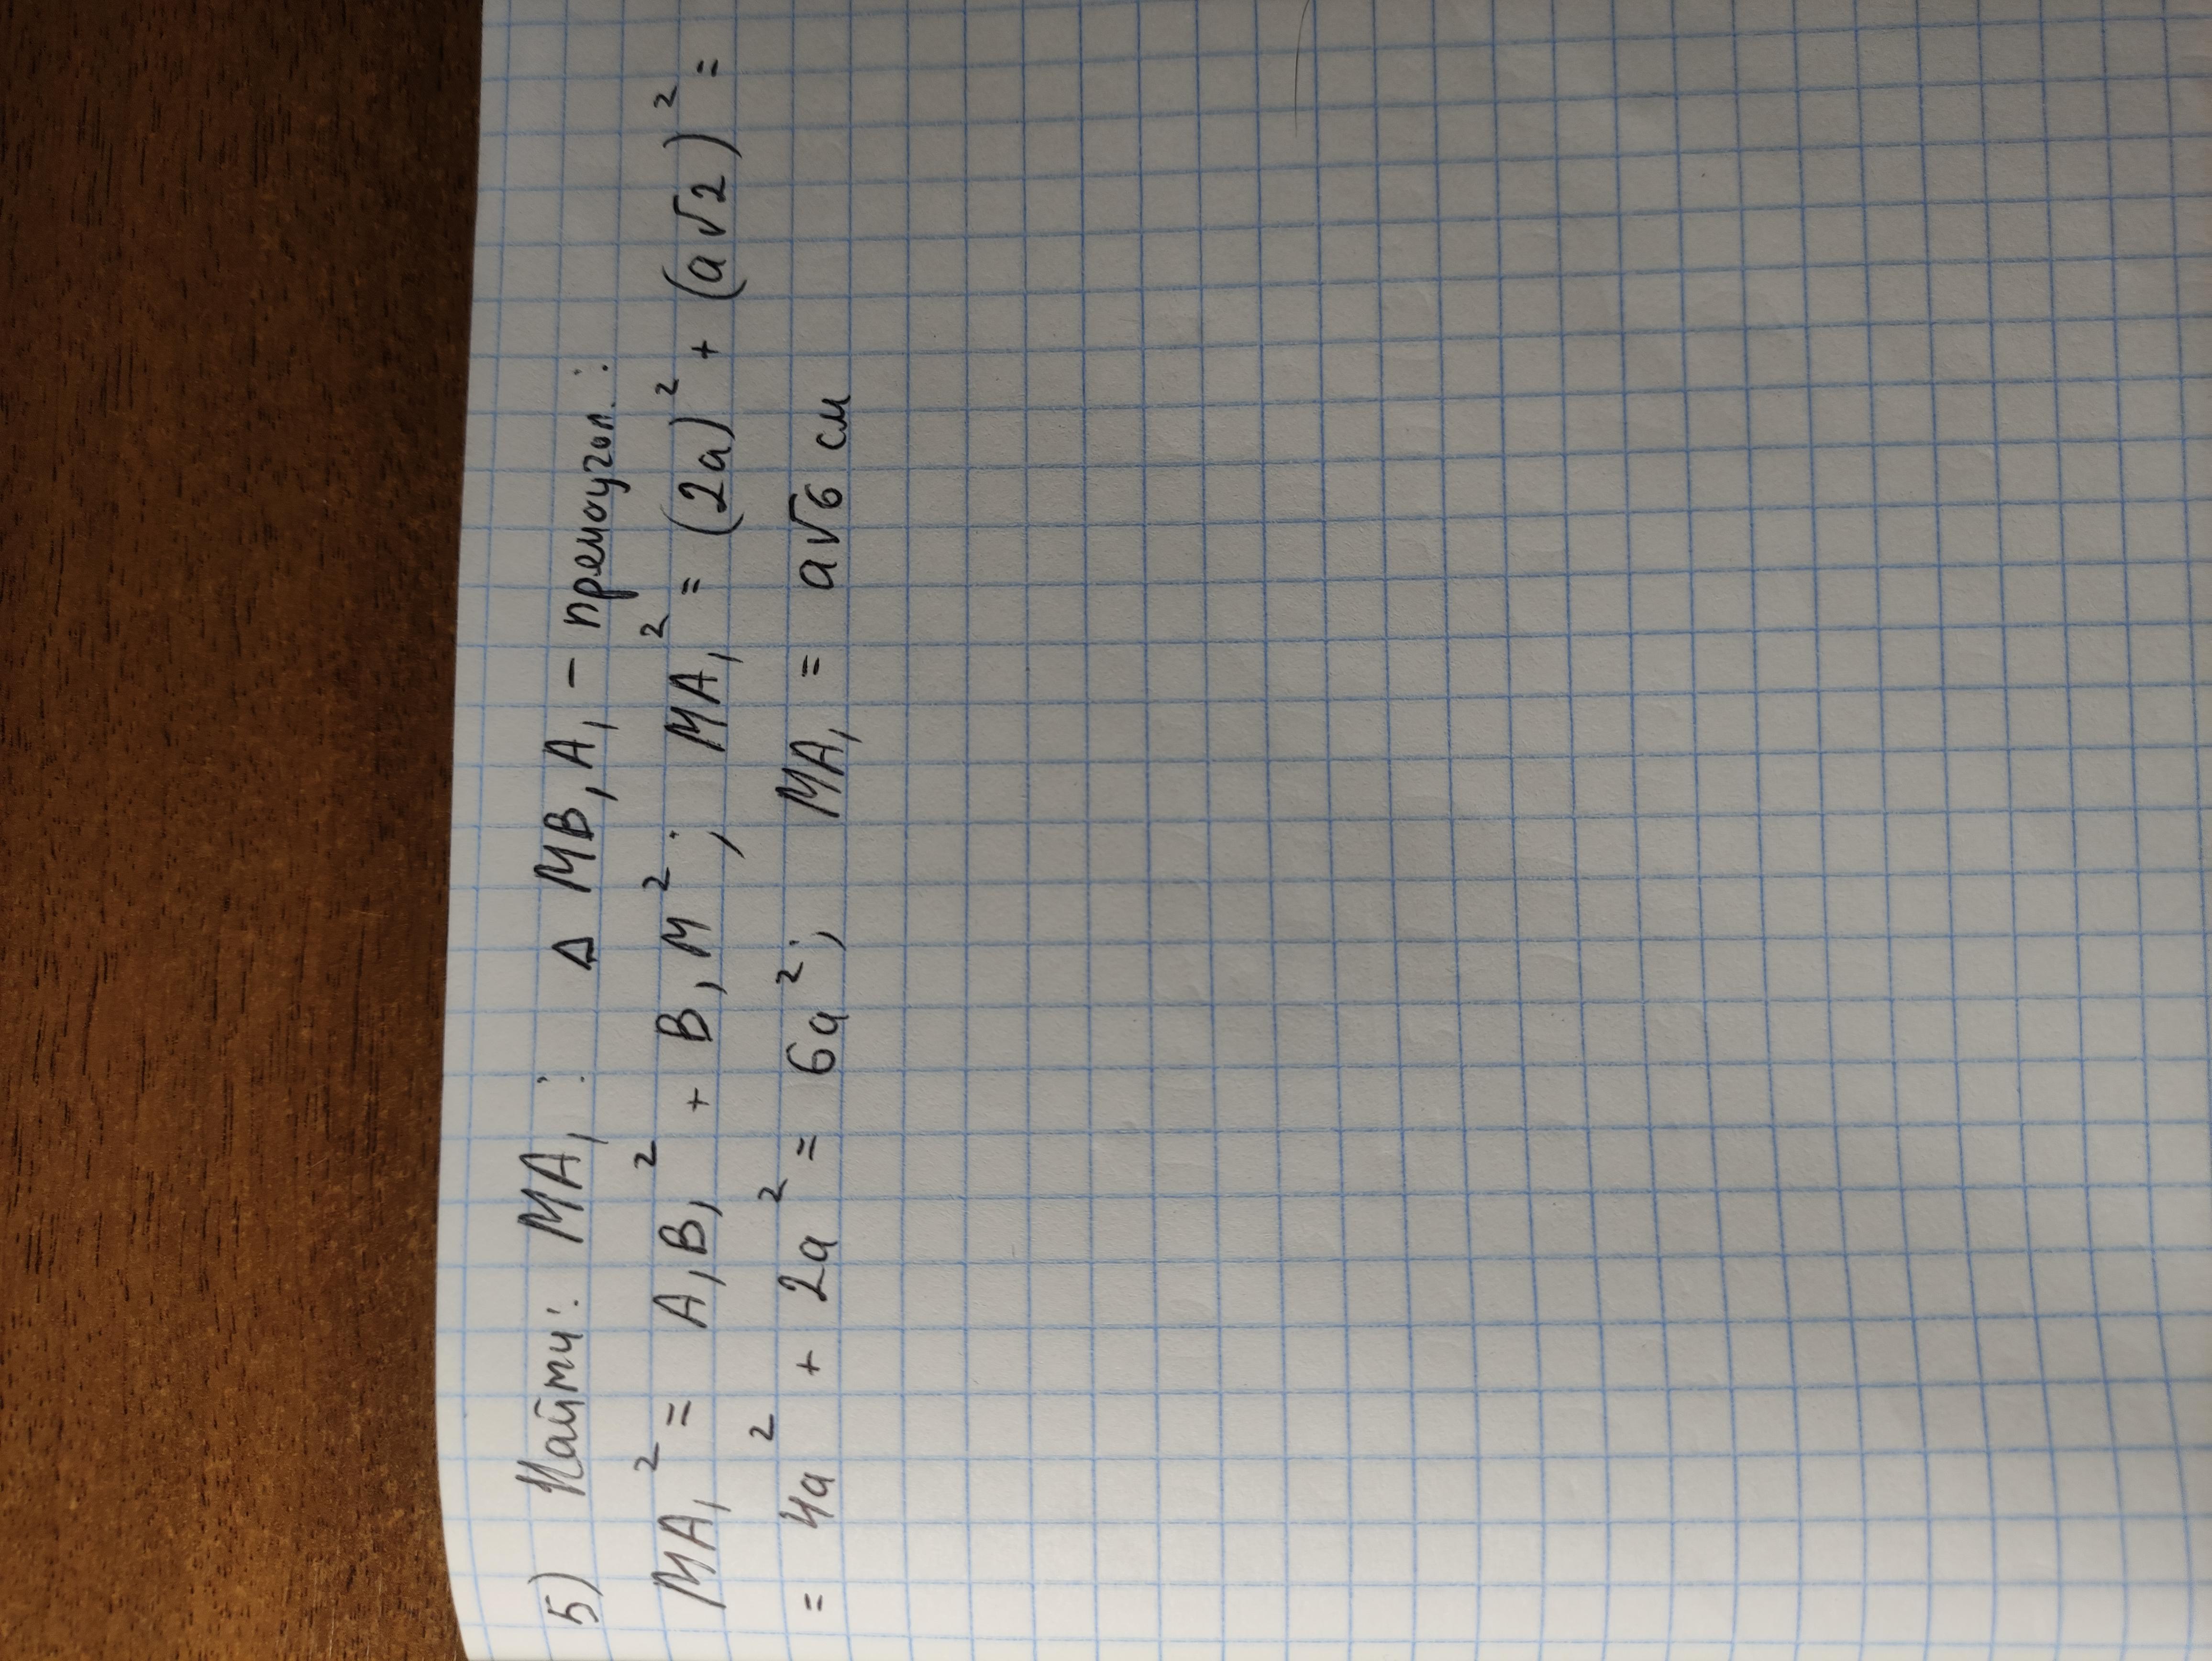 5) Найти: MA₁: Δ MB₁A₁ – премоугол.:
MA₁² = A₁B₁² + B₁M²; MA₁² = (2a)² + (a√2)² =
= 4a² + 2a² = 6a²; MA₁ = a√6 см